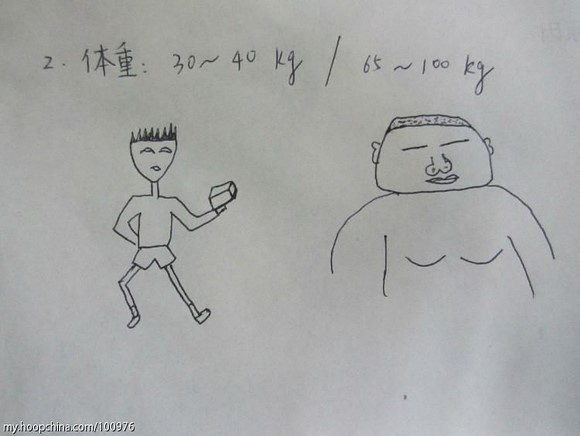 2. 体重: 30~40 kg / 65~100 kg
my.hoopchina.com/100976